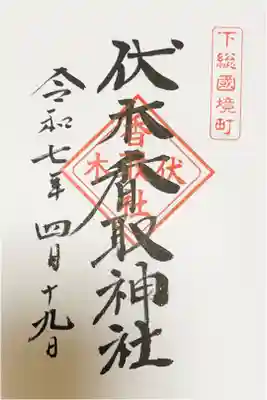 下総國境町
伏木香取神社
伏木香取社
令和七年四月十九日